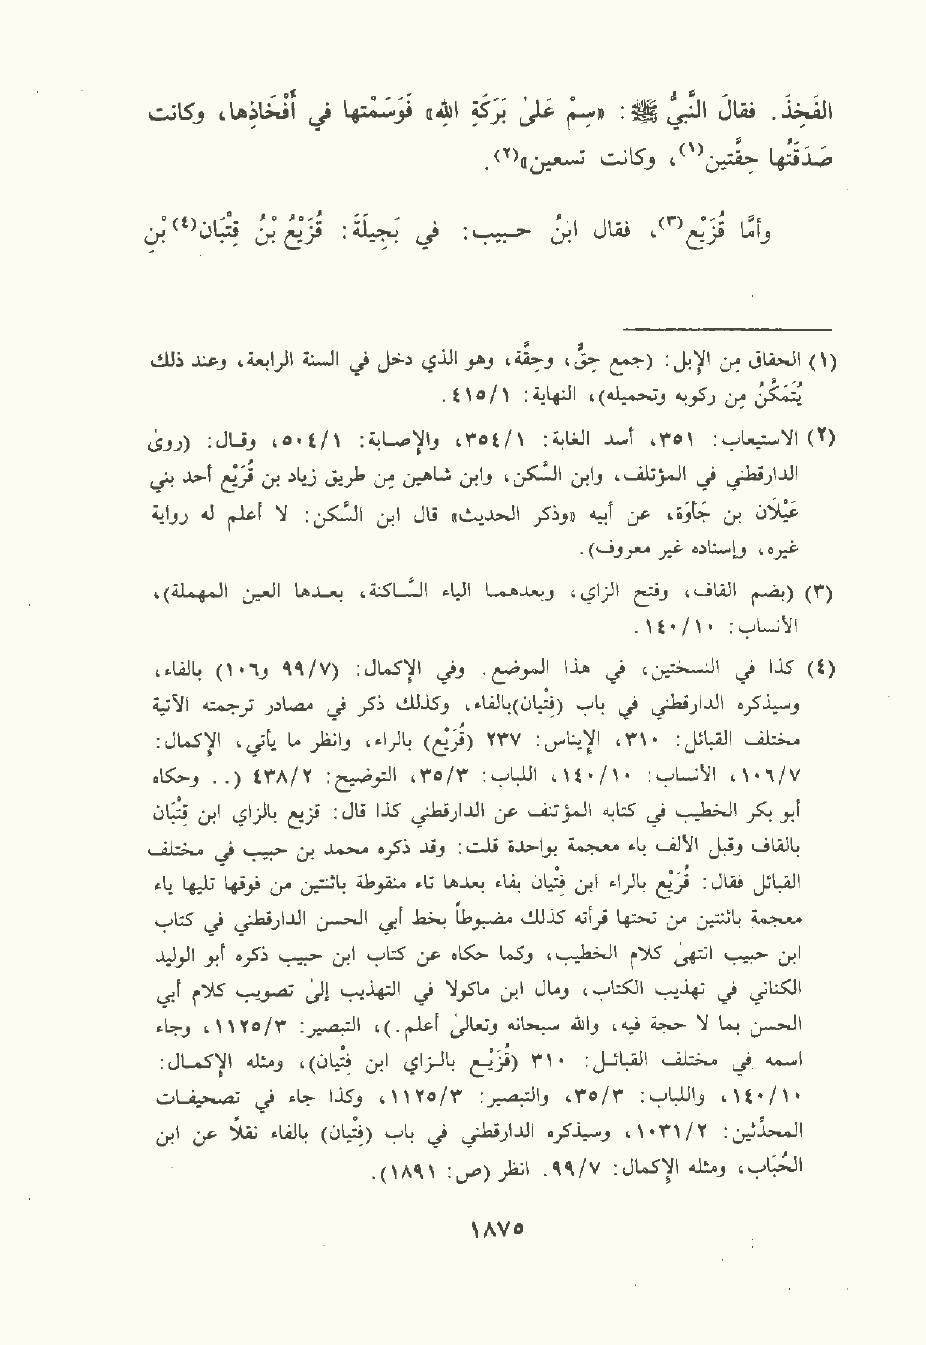 الفَخِذَ. فقالَ النَّبيُّ ﷺ: «سِمْ علىٰ بَرَكَةِ اللهِ» فَوَسَمْتها في أَفْخَاذِها، وكانت
صَدَقَتُها حِقَّتين(١)، وكانت تسعين»(٢).
وأمّا قُزَيْع(٣)، فقال ابنُ حبيب: في بَجيلَةَ: قُزَيْعُ بْنُ قِتْبَان(٤) بْنِ
(١) الحقاق من الإبل: (جمع حِقّ، وحِقَّة، وهو الذي دخل في السنة الرابعة، وعند ذلك
يُتَمَكَّنُ من ركوبه وتحميله)، النهاية: ٤١٥/١.
(٢) الاستيعاب: ٣٥١، أسد الغابة: ٣٥٤/١، والإصابة: ٥٠٤/١، وقال: (روىٰ
الدارقطني في المؤتلف، وابن السَّكن، وابن شاهين من طريق زياد بن قُرَيْع أحد بني
غَيْلَان بن جَأوَة، عن أبيه «وذكر الحديث» قال ابن السَّكن: لا أعلم له رواية
غيره، وإسناده غير معروف).
(٣) (بضم القاف، وفتح الزاي، وبعدهما الياء السَّاكنة، بعدها العين المهملة)،
الأنساب: ١٤٠/١٠.
(٤) كذا في النسختين، في هذا الموضع. وفي الإكمال: (٩٩/٧ و١٠٦) بالفاء،
وسيذكره الدارقطني في باب (فِتْيان) بالفاء، وكذلك ذكر في مصادر ترجمته الآتية
مختلف القبائل: ٣١٠، الإيناس: ٢٣٧ (قُرَيْع) بالراء، وانظر ما يأتي، الإكمال:
١٠٦/٧، الأنساب: ١٤٠/١٠، اللباب: ٣٥/٣، التوضيح: ٤٣٨/٢ (.. وحكاه
أبو بكر الخطيب في كتابه المؤتنف عن الدارقطني كذا قال: قزيع بالزاي ابن قِتْبَان
بالقاف وقبل الألف باء معجمة بواحدة قلت: وقد ذكره محمد بن حبيب في مختلف
القبائل فقال: قُرَيْع بالراء ابن فِتْيان بفاء بعدها تاء منقوطة باثنتين من فوقها تليها ياء
معجمة باثنتين من تحتها قرأته كذلك مضبوطاً بخط أبي الحسن الدارقطني في كتاب
ابن حبيب انتهىٰ كلام الخطيب، وكما حكاه عن كتاب ابن حبيب ذكره أبو الوليد
الكناني في تهذيب الكتاب، ومال ابن ماكولا في التهذيب إلىٰ تصويب كلام أبي
الحسن بما لا حجة فيه، والله سبحانه وتعالىٰ أعلم.)، التبصير: ١١٢٥/٣، وجاء
اسمه في مختلف القبائل: ٣١٠ (قُزَيْع بالزاي ابن فِتْيان)، ومثله الإكمال:
١٤٠/١٠، واللباب: ٣٥/٣، والتبصير: ١١٢٥/٣، وكذا جاء في تصحيفات
المحدِّثين: ١٠٣١/٢، وسيذكره الدارقطني في باب (فِتْيان) بالفاء نقلاً عن ابن
الحُبَاب، ومثله الإكمال: ٩٩/٧. انظر (ص: ١٨٩١).
١٨٧٥